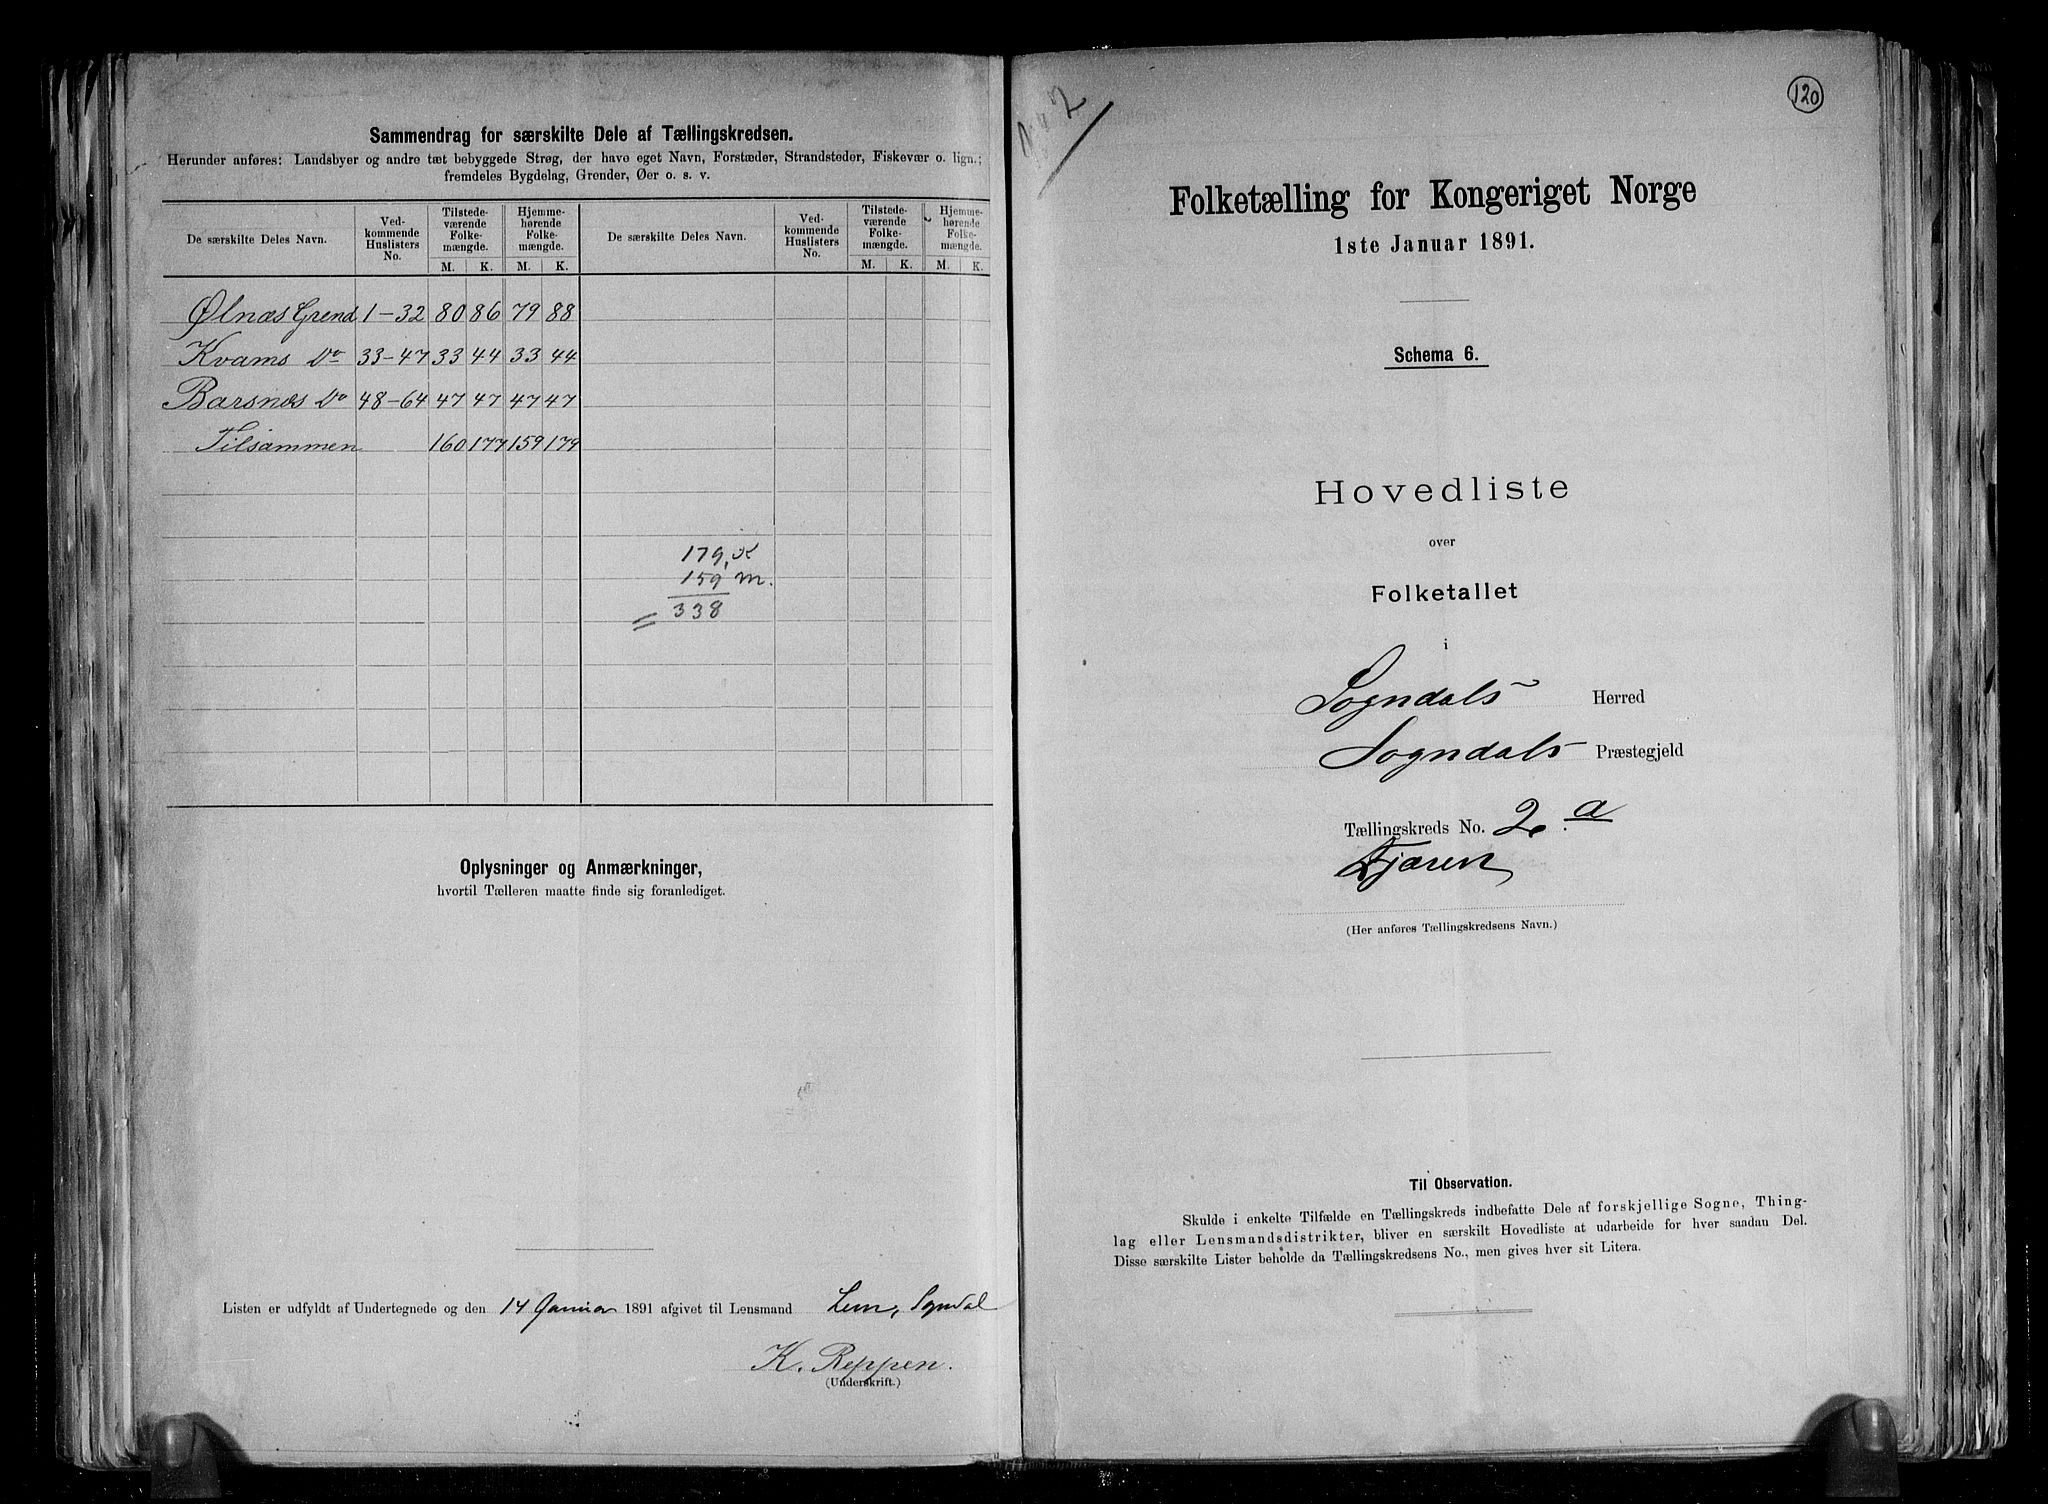 Sammendrag for særskilte Dele af Tællingskredsen.
Herunder anføres: Landsbyer og andre tæt bebyggede Strøg, der have eget Navn, Forstæder, Strandsteder, Fiskevær o. lign.;
fremdeles Bygdelag, Grender, Øer o. s. v.
De særskilte Deles Navn. Ved-kommende Huslisters No. Tilstede-værende Folke-mængde. Hjemme-hørende Folke-mængde. De særskilte Deles Navn. Ved-kommende Huslisters No. Tilstede-værende Folke-mængde. Hjemme-hørende Folke-mængde.
M. K. M. K. M. K. M. K.
Ølnæs Grend 1-32 80 86 79 88
Kvams Do 33-47 33 44 33 44
Barsnes Do 48-64 47 47 47 47
Tilsammen 160 177 159 179
179 K
159 m.
338
Oplysninger og Anmærkninger,
hvortil Tælleren maatte finde sig foranlediget.
Listen er udfyldt af Undertegnede og den 14 Januar 1891 afgivet til Lensmand Lem, Sogndal
K. Reppen.
(Underskrift.)
120
Folketælling for Kongeriget Norge
1ste Januar 1891.
Schema 6.
Hovedliste
over
Folketallet
i
Sogndals Herred
Sogndals Præstegjeld
Tællingskreds No. 2. a
(Her anføres Tællingskredsens Navn.)
Til Observation.
Skulde i enkelte Tilfælde en Tællingskreds indbefatte Dele af forskjellige Sogne, Thing-
lag eller Lensmandsdistrikter, bliver en særskilt Hovedliste at udarbeide for hver saadan Del.
Disse særskilte Lister beholde da Tællingskredsens No., men gives hver sit Litera.